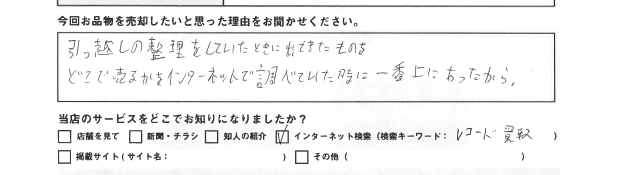 今回お品物を売却したいと思った理由をお聞かせください。
引っ越しの整理をしていたときに出てきたものを
どこで売るかをインターネットで調べていた時に一番上にあったから。
当店のサービスをどこでお知りになりましたか？
□ 店舗を見て □ 新聞・チラシ □ 知人の紹介 ☑ インターネット検索（検索キーワード： レコード 買取 ）
□ 掲載サイト（サイト名： ） □ その他（ ）